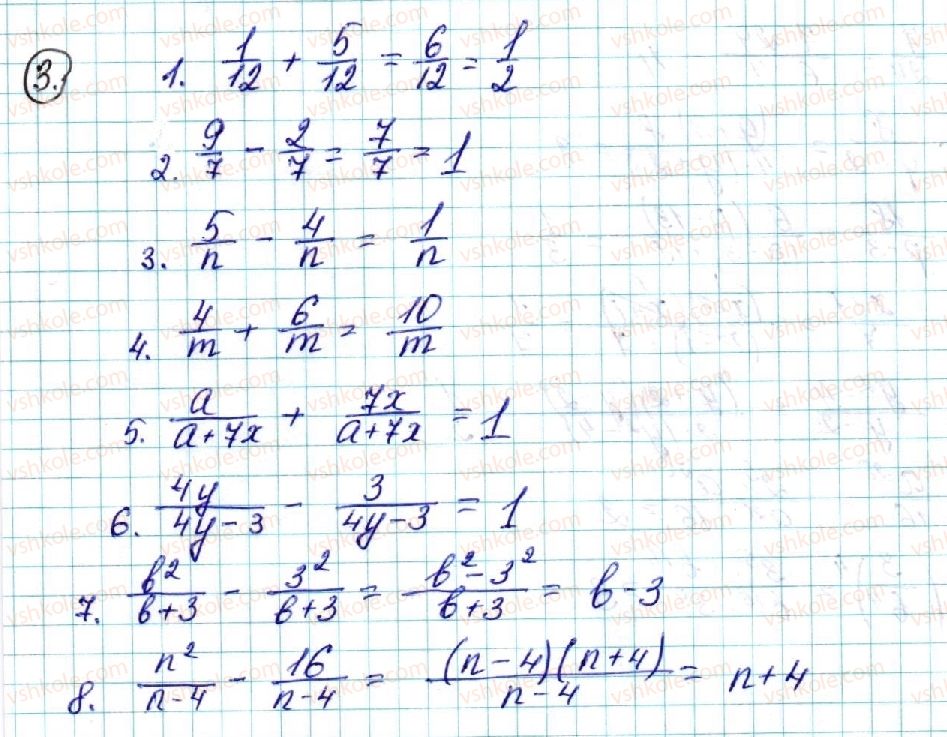 3.
1. 1/12 + 5/12 = 6/12 = 1/2
2. 9/7 - 2/7 = 7/7 = 1
3. 5/n - 4/n = 1/n
4. 4/m + 6/m = 10/m
5. a/(a+7x) + 7x/(a+7x) = 1
6. 4y/(4y-3) - 3/(4y-3) = 1
7. b²/(b+3) - 3²/(b+3) = (b²-3²)/(b+3) = b-3
8. n²/(n-4) - 16/(n-4) = (n-4)(n+4)/(n-4) = n+4
vshkole.com